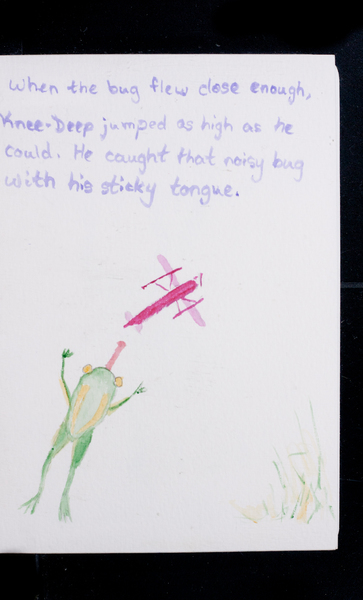 When the bug flew close enough,
Knee-Deep jumped as high as he
could. He caught that noisy bug
with his sticky tongue.